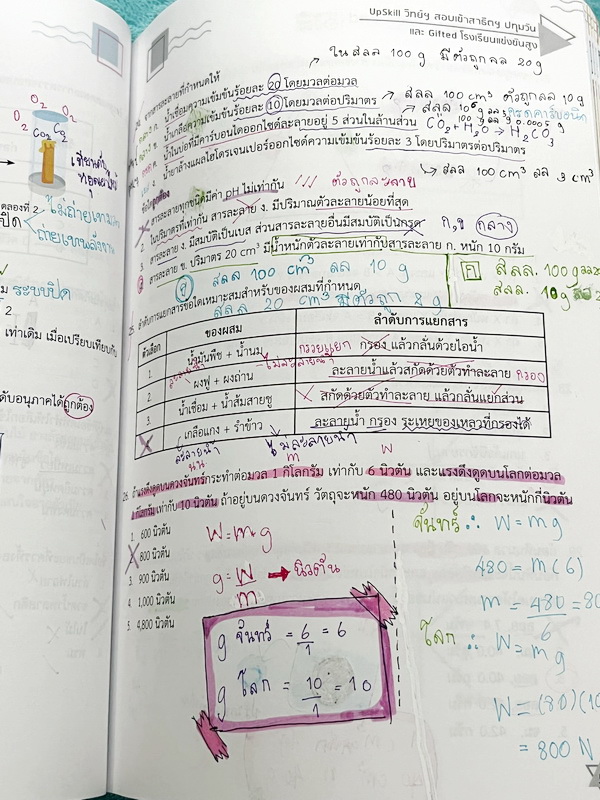 UpSkill วิทย์ฯ สอบเข้าสาธิตฯ ปทุมวัน
และ Gifted โรงเรียนแข่งขันสูง
ในสลล 100 g มีตัวถูกลล 20 g
จากสารละลายที่กำหนดให้
น้ำเชื่อมความเข้มข้นร้อยละ 20 โดยมวลต่อมวล
สลล 100 cm³ ตัวถูกลล 10 g
น้ำเกลือความเข้มข้นร้อยละ 10 โดยมวลต่อปริมาตร
น้ำในบ่อที่มีคาร์บอนไดออกไซด์ละลายอยู่ 5 ส่วนในล้านส่วน
CO₂ + H₂O → H₂CO₃
น้ำยาล้างแผลไฮโดรเจนเปอร์ออกไซด์ความเข้มข้นร้อยละ 3 โดยปริมาตรต่อปริมาตร
สลล 100 cm³ ลล 3 cm³
O₂
O₂ O₂
O₂ CO₂
ข้อใดถูกต้อง
สารละลายทุกชนิดมีค่า pH ไม่เท่ากัน
ตัวถูกละลาย
ในปริมาตรที่เท่ากัน สารละลาย ง. มีปริมาณตัวละลายน้อยที่สุด
สารละลาย ง. มีสมบัติเป็นเบส ส่วนสารละลายอื่นมีสมบัติเป็นกรด
ก,ข กลาง
สารละลาย ข. ปริมาตร 20 cm³ มีน้ำหนักตัวละลายเท่ากับสารละลาย ก. หนัก 10 กรัม
สลล 100 cm³ ลล 10 g
สลล 20 cm³ มีตัวถูก 2 g
ก สลล. 100 g
สลล. 10 g
ตลองที่ 2
ไม่ถ่ายเทมวล
ถ่ายเทพลังงาน
ระบบปิด
เท่าเดิม เมื่อเปรียบเทียบกับ
ดับอนุภาคได้ถูกต้อง
25. ลำดับการแยกสารข้อใดเหมาะสมสำหรับของผสมที่กำหนด
ตัวเลือก ของผสม ลำดับการแยกสาร
1. น้ำมันพืช + น้ำนม กรวยแยก กรอง แล้วกลั่นด้วยไอน้ำ
2. ผงฟู + ผงถ่าน ละลายน้ำแล้วสกัดด้วยตัวทำละลาย กรอง
ไม่ละลายน้ำ
3. น้ำเชื่อม + น้ำส้มสายชู สกัดด้วยตัวทำละลาย แล้วกลั่นแยกส่วน
เกลือแกง + รำข้าว ละลายน้ำ กรอง ระเหยของเหลวที่กรองได้
ละลายน้ำ ไม่ละลายน้ำ
m w
26. ถ้าแรงดึงดูดบนดวงจันทร์กระทำต่อมวล 1 กิโลกรัม เท่ากับ 6 นิวตัน และแรงดึงดูดบนโลกต่อมวล
1 กิโลกรัมเท่ากับ 10 นิวตัน ถ้าอยู่บนดวงจันทร์ วัตถุจะหนัก 480 นิวตัน อยู่บนโลกจะหนักกี่นิวตัน
1. 600 นิวตัน
800 นิวตัน
3. 900 นิวตัน
4. 1,000 นิวตัน
5. 4,800 นิวตัน
W = mg
g = W/m → นิวตัน
g จันทร์ = 6/1 = 6
g โลก = 10/1 = 10
จันทร์ ∴ W = mg
480 = m(6)
m = 480/6 = 80
โลก ∴ W = mg
W = (80)(10
= 800 N